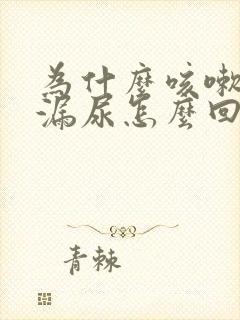 為什麼咳嗽
漏尿怎麼回
青棘